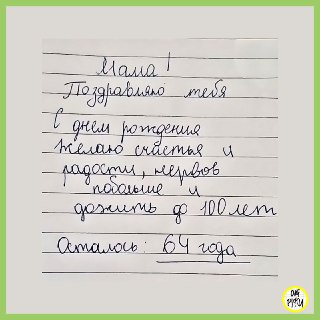 Мама!
Поздравляю тебя
С днем рождения
Желаю счастья и
радости, нервов
побольше и
дожить до 100 лет
Осталось: 64 года